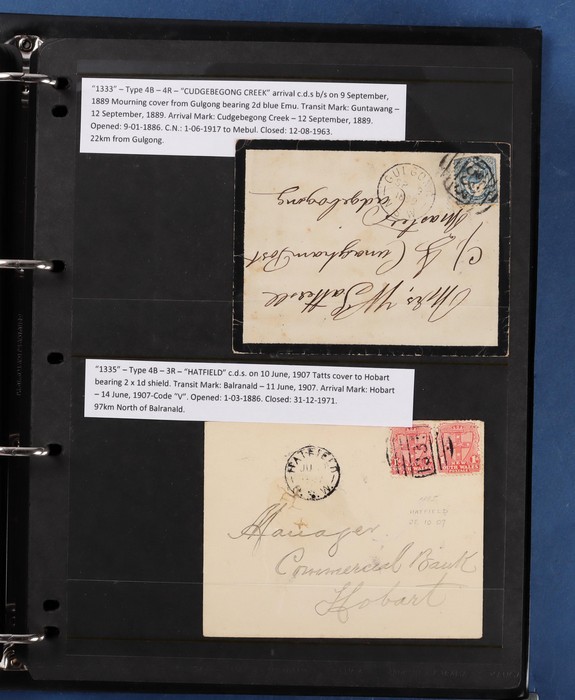 "1333" – Type 4B – 4R – "CUDGEBEGONG CREEK" arrival c.d.s b/s on 9 September,
1889 Mourning cover from Gulgong bearing 2d blue Emu. Transit Mark: Guntawang –
12 September, 1889. Arrival Mark: Cudgebegong Creek – 12 September, 1889.
Opened: 9-01-1886. C.N.: 1-06-1917 to Mebul. Closed: 12-08-1963.
22km from Gulgong.
GULGO
Mrs, W
C/
Post
Master
Cudgebegong
"1335" – Type 4B – 3R – "HATFIELD" c.d.s. on 10 June, 1907 Tatts cover to Hobart
bearing 2 x 1d shield. Transit Mark: Balranald – 11 June, 1907. Arrival Mark: Hobart
– 14 June, 1907-Code "V". Opened: 1-03-1886. Closed: 31-12-1971.
97km North of Balranald.
HATFIELD
JU
N.S.W.
1335
HATFIELD
Manager
Commercial Bank
Hobart